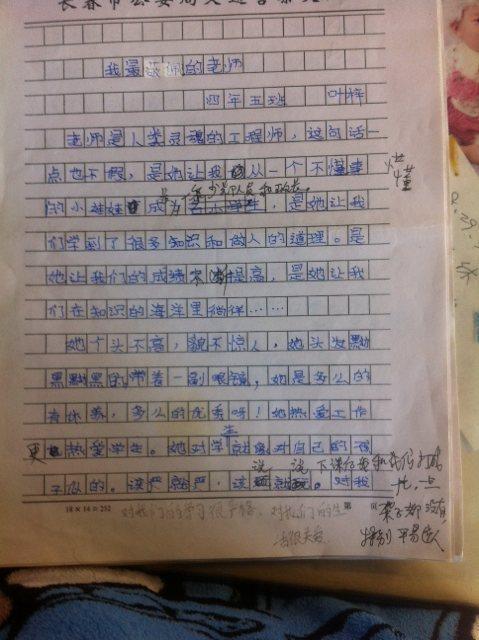 我最敬佩的老师
四年五班 叶梓
老师是人类灵魂的工程师，这句话一
点也不假，是她让我从一个不懂事
懂
的小娃娃成为
少先队员和班长。
，是她让我
们学到了很多知识和做人的道理。是
她让我们的成绩不断提高，是她让我
们在知识的海洋里徜徉……
她个头不高，貌不惊人，她头发黝
黑黝黑的带着一副眼镜，她是多么的
有休养，多么的优秀呀！她热爱工作
更热爱学生。她对学生就像对自己的孩
子似的。该严就严，该
说
说
下课后
和我们
对我
18×14＝252
第
页
对我们的学习很严格，对我们的生
活很关爱
架子都没有，
特别平易近人